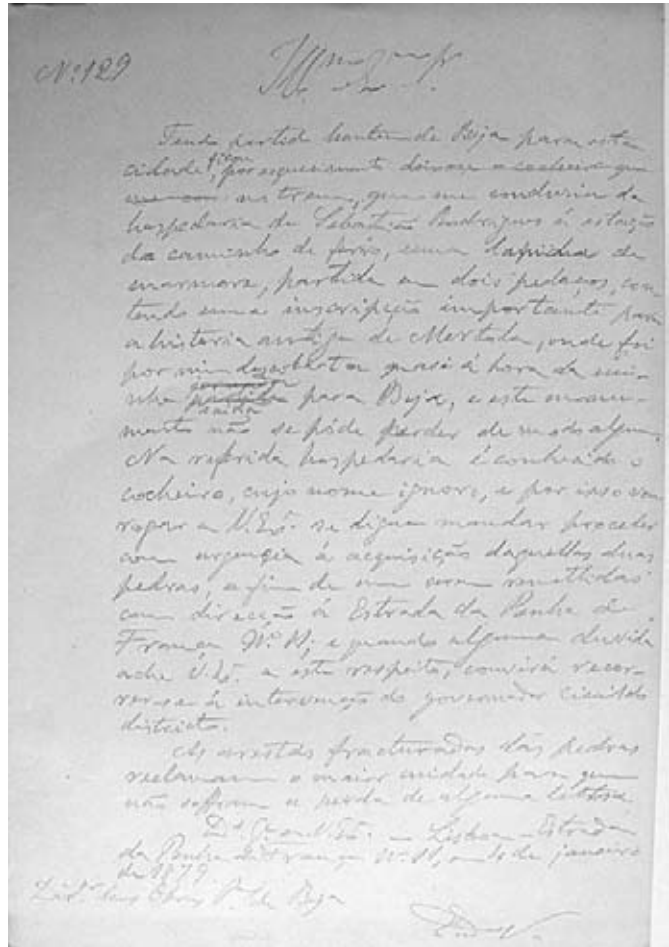 Nº 129
Tendo partido hontem de Beja para esta
cidade, por esquecimento deixou o cocheiro que
no trem, que me conduziu da
hospedaria de Sebastião Rodrigues á estação
do caminho de ferro, uma lapida de
marmore, partida em dois pedaços, con-
tendo uma inscripção importante para
a historia antiga de Mertola, onde foi
por mim descoberta quasi á hora da mi-
nha partida
saida para Beja, e este monu-
mento não se póde perder de modo algum.
Na referida hospedaria é conhecido o
cocheiro, cujo nome ignoro, e por isso vou
rogar a V. Exª. se digne mandar proceder
com urgencia á acquisição daquellas duas
pedras, a fim de me serem remettidas
com direcção á Estrada da Penha de
França Nº 11; e quando alguma duvida
ache V. Exª. a este respeito, convirá recor-
rer-se á intervenção do governador civil do
districto.
As arestas fracturadas das pedras
reclamam o maior cuidado para que
não soffram a perda de alguma lettra.
Lisboa Estrada
da Penha de França Nº 11, de janeiro
de 1879
Beja